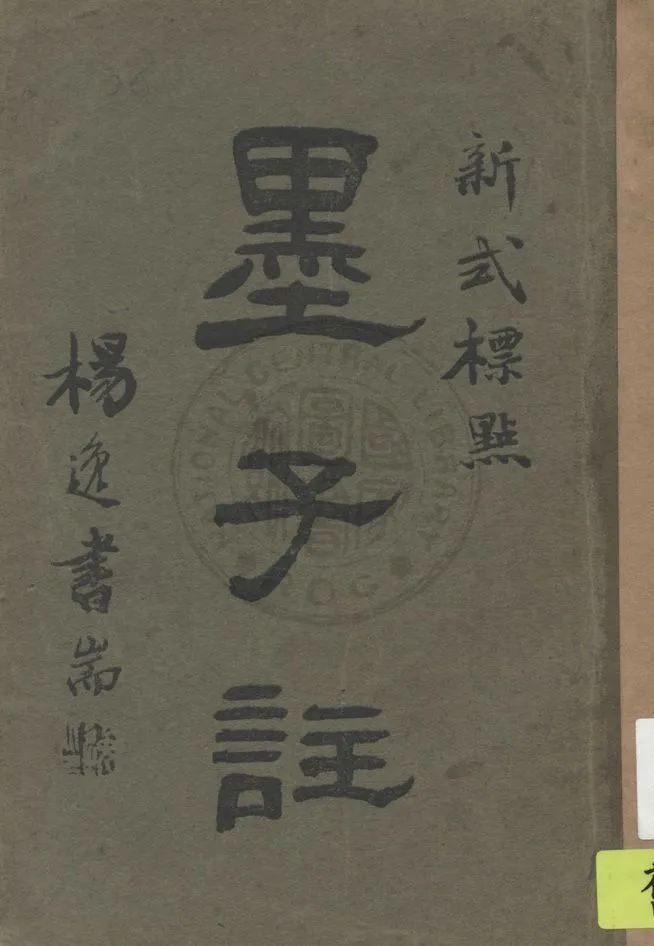 新式標點
墨子註
楊逸書耑
NATIONAL CENTRAL LIBRARY
ROC